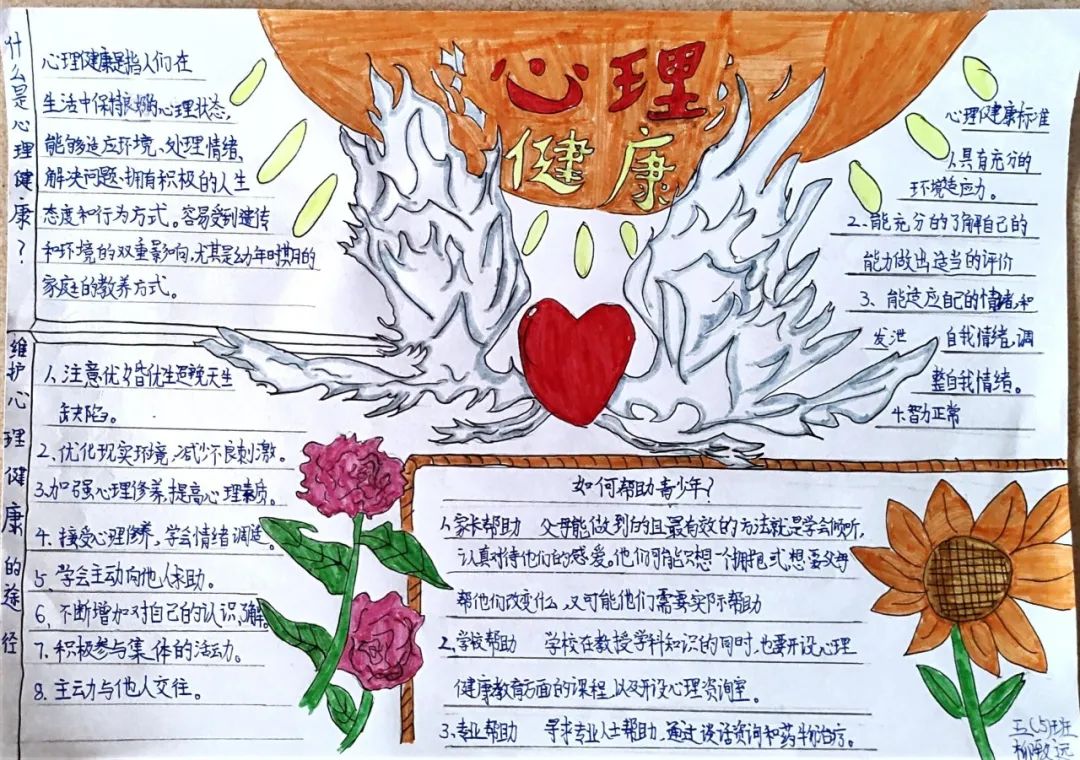 心理
健康
什么是心理健康？
心理健康是指人们在
生活中保持良好的心理状态，
能够适应环境、处理情绪、
解决问题、拥有积极的人生
态度和行为方式。容易受到遗传
和环境的双重影响，尤其是幼年时期的
家庭的教养方式。
维护心理健康的途径
1、注意优婚优生避免天生
缺陷。
2、优化现实环境，减少不良刺激。
3、加强心理修养，提高心理素质。
4、接受心理修养，学会情绪调适。
5、学会主动向他人求助。
6、不断增加对自己的认识、了解。
7、积极参与集体的活动。
8、主动与他人交往。
心理健康标准
1、具有充分的
环境适应力。
2、能充分的了解自己的
能力做出适当的评价
3、能适应自己的情绪，和
发泄 自我情绪，调
整自我情绪。
4、智力正常
如何帮助青少年？
1、家长帮助 父母能做到的且最有效的方法就是学会倾听，
认真对待他们的感爱。他们可能只想一个拥抱式，想要父母
帮他们改变什么，又可能他们需要实际帮助
2、学校帮助 学校在教授学科知识的同时，也要开设心理
健康教育方面的课程，以及开设心理资询室。
3、专业帮助 寻求专业人士帮助，通过谈话资询和药物治疗。
五（5）班
柳致远